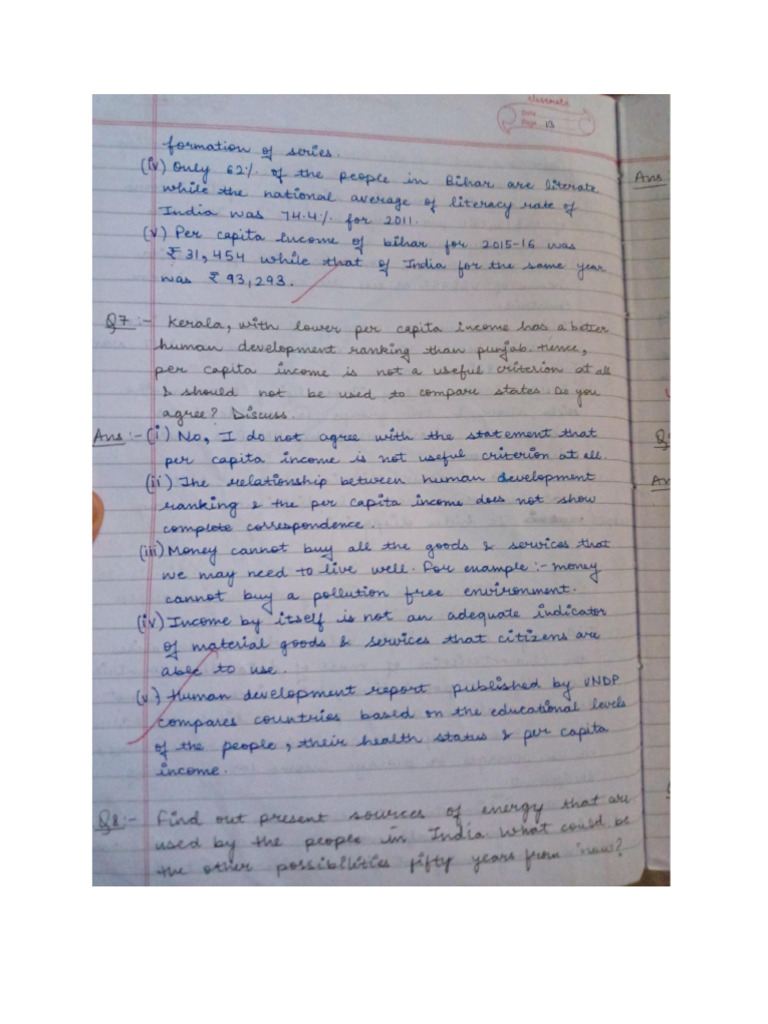 classmate
Date
Page 13
formation of series.
(iv) Only 62% of the people in Bihar are literate
while the national average of literacy rate of
India was 74.4% for 2011.
(v) Per capita income of bihar for 2015-16 was
₹31,454 while that of India for the same year
was ₹93,293.
Q7:- Kerala, with lower per capita income has a better
human development ranking than punjab. Hence,
per capita income is not a useful criterion at all
& should not be used to compare states. Do you
agree? Discuss.
Ans:-(i) No, I do not agree with the statement that
per capita income is not useful criterion at all.
(ii) The relationship between human development
ranking & the per capita income does not show
complete correspondence.
(iii) Money cannot buy all the goods & services that
we may need to live well. For example :- money
cannot buy a pollution free environment.
(iv) Income by itself is not an adequate indicator
of material goods & services that citizens are
able to use.
(v) Human development report published by UNDP
compares countries based on the educational levels
of the people, their health status & per capita
income.
Q8:- Find out present sources of energy that are
used by the people in India what could be
the other possibilities fifty years from now?
Ans
Q
An